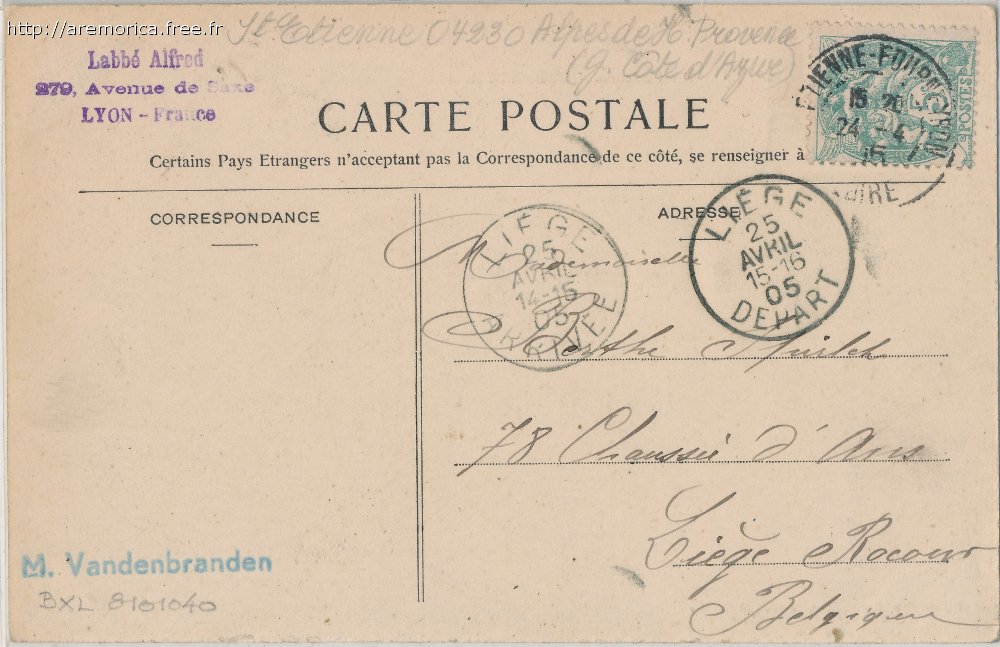 http://aremorica.free.fr
St Etienne 04230 Alpes de Hte Provence
(g. Côte d'Azur)
Labbé Alfred
279, Avenue de Saxe
LYON - France
CARTE POSTALE
Certains Pays Etrangers n'acceptent pas la Correspondance de ce côté, se renseigner à
ETIENNE-FOURNEYRON
15
24 -4
LOIRE
POSTES
CORRESPONDANCE
ADRESSE
LIÉGE
25
AVRIL
14-15
05
ARRIVÉE
LIÉGE
25
AVRIL
15-16
05
DÉPART
Mademoiselle
Berthe
78 Chaussée d'Ans
Liège Rocour
Belgique
M. Vandenbranden
BXL 8101040